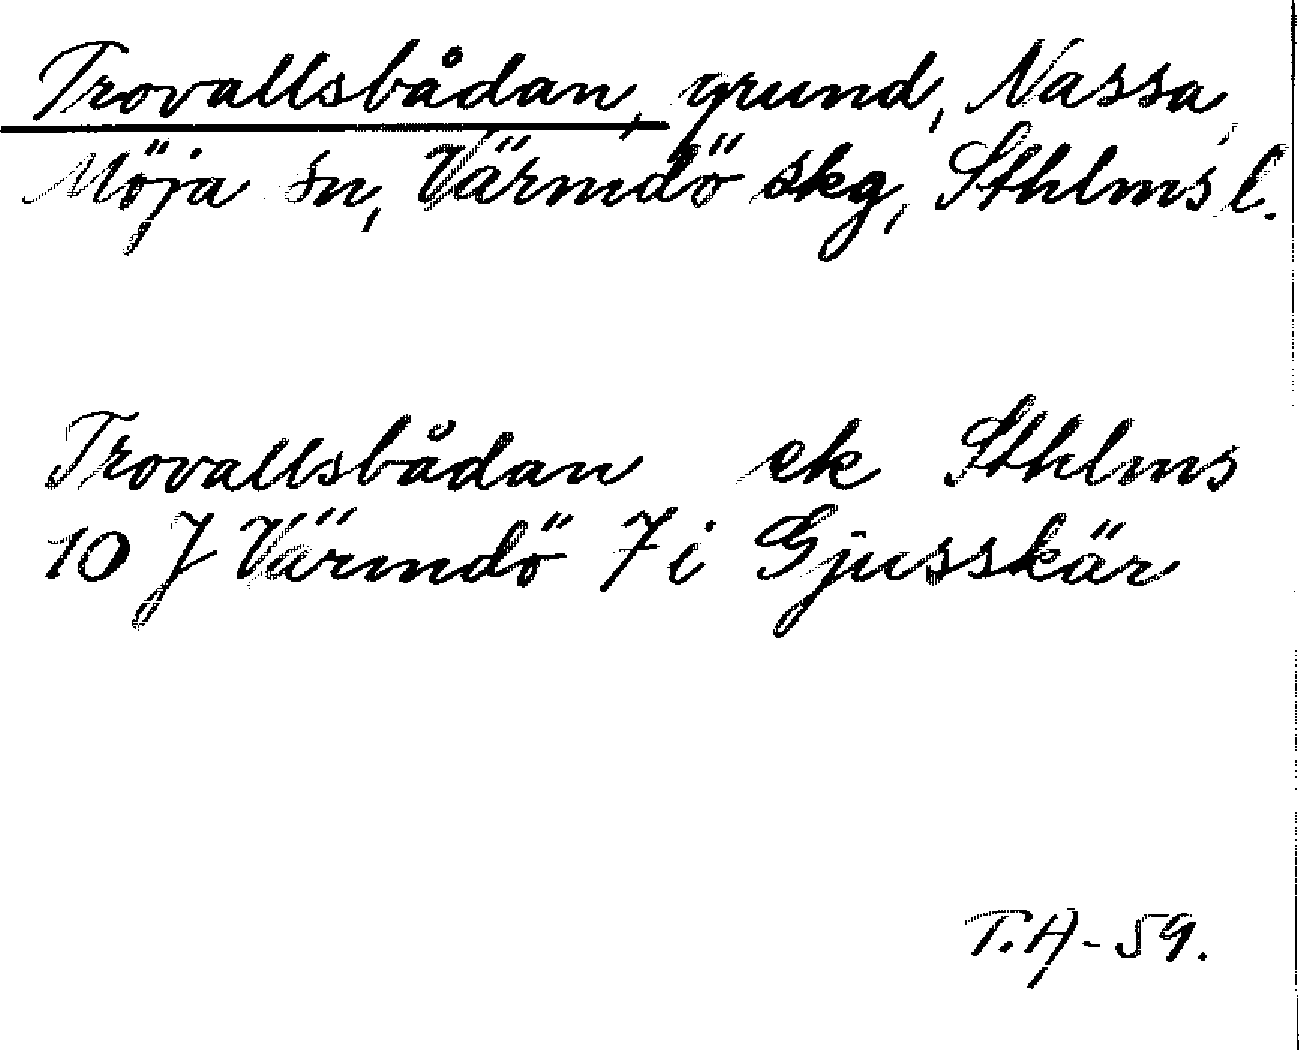 Trovallsbådan, grund, Nassa,
Möja sn, Värmdö skg, Sthlms l.
Trovallsbådan ek Sthlms
10 J Värmdö 7 i Gjusskär
T.H-59.